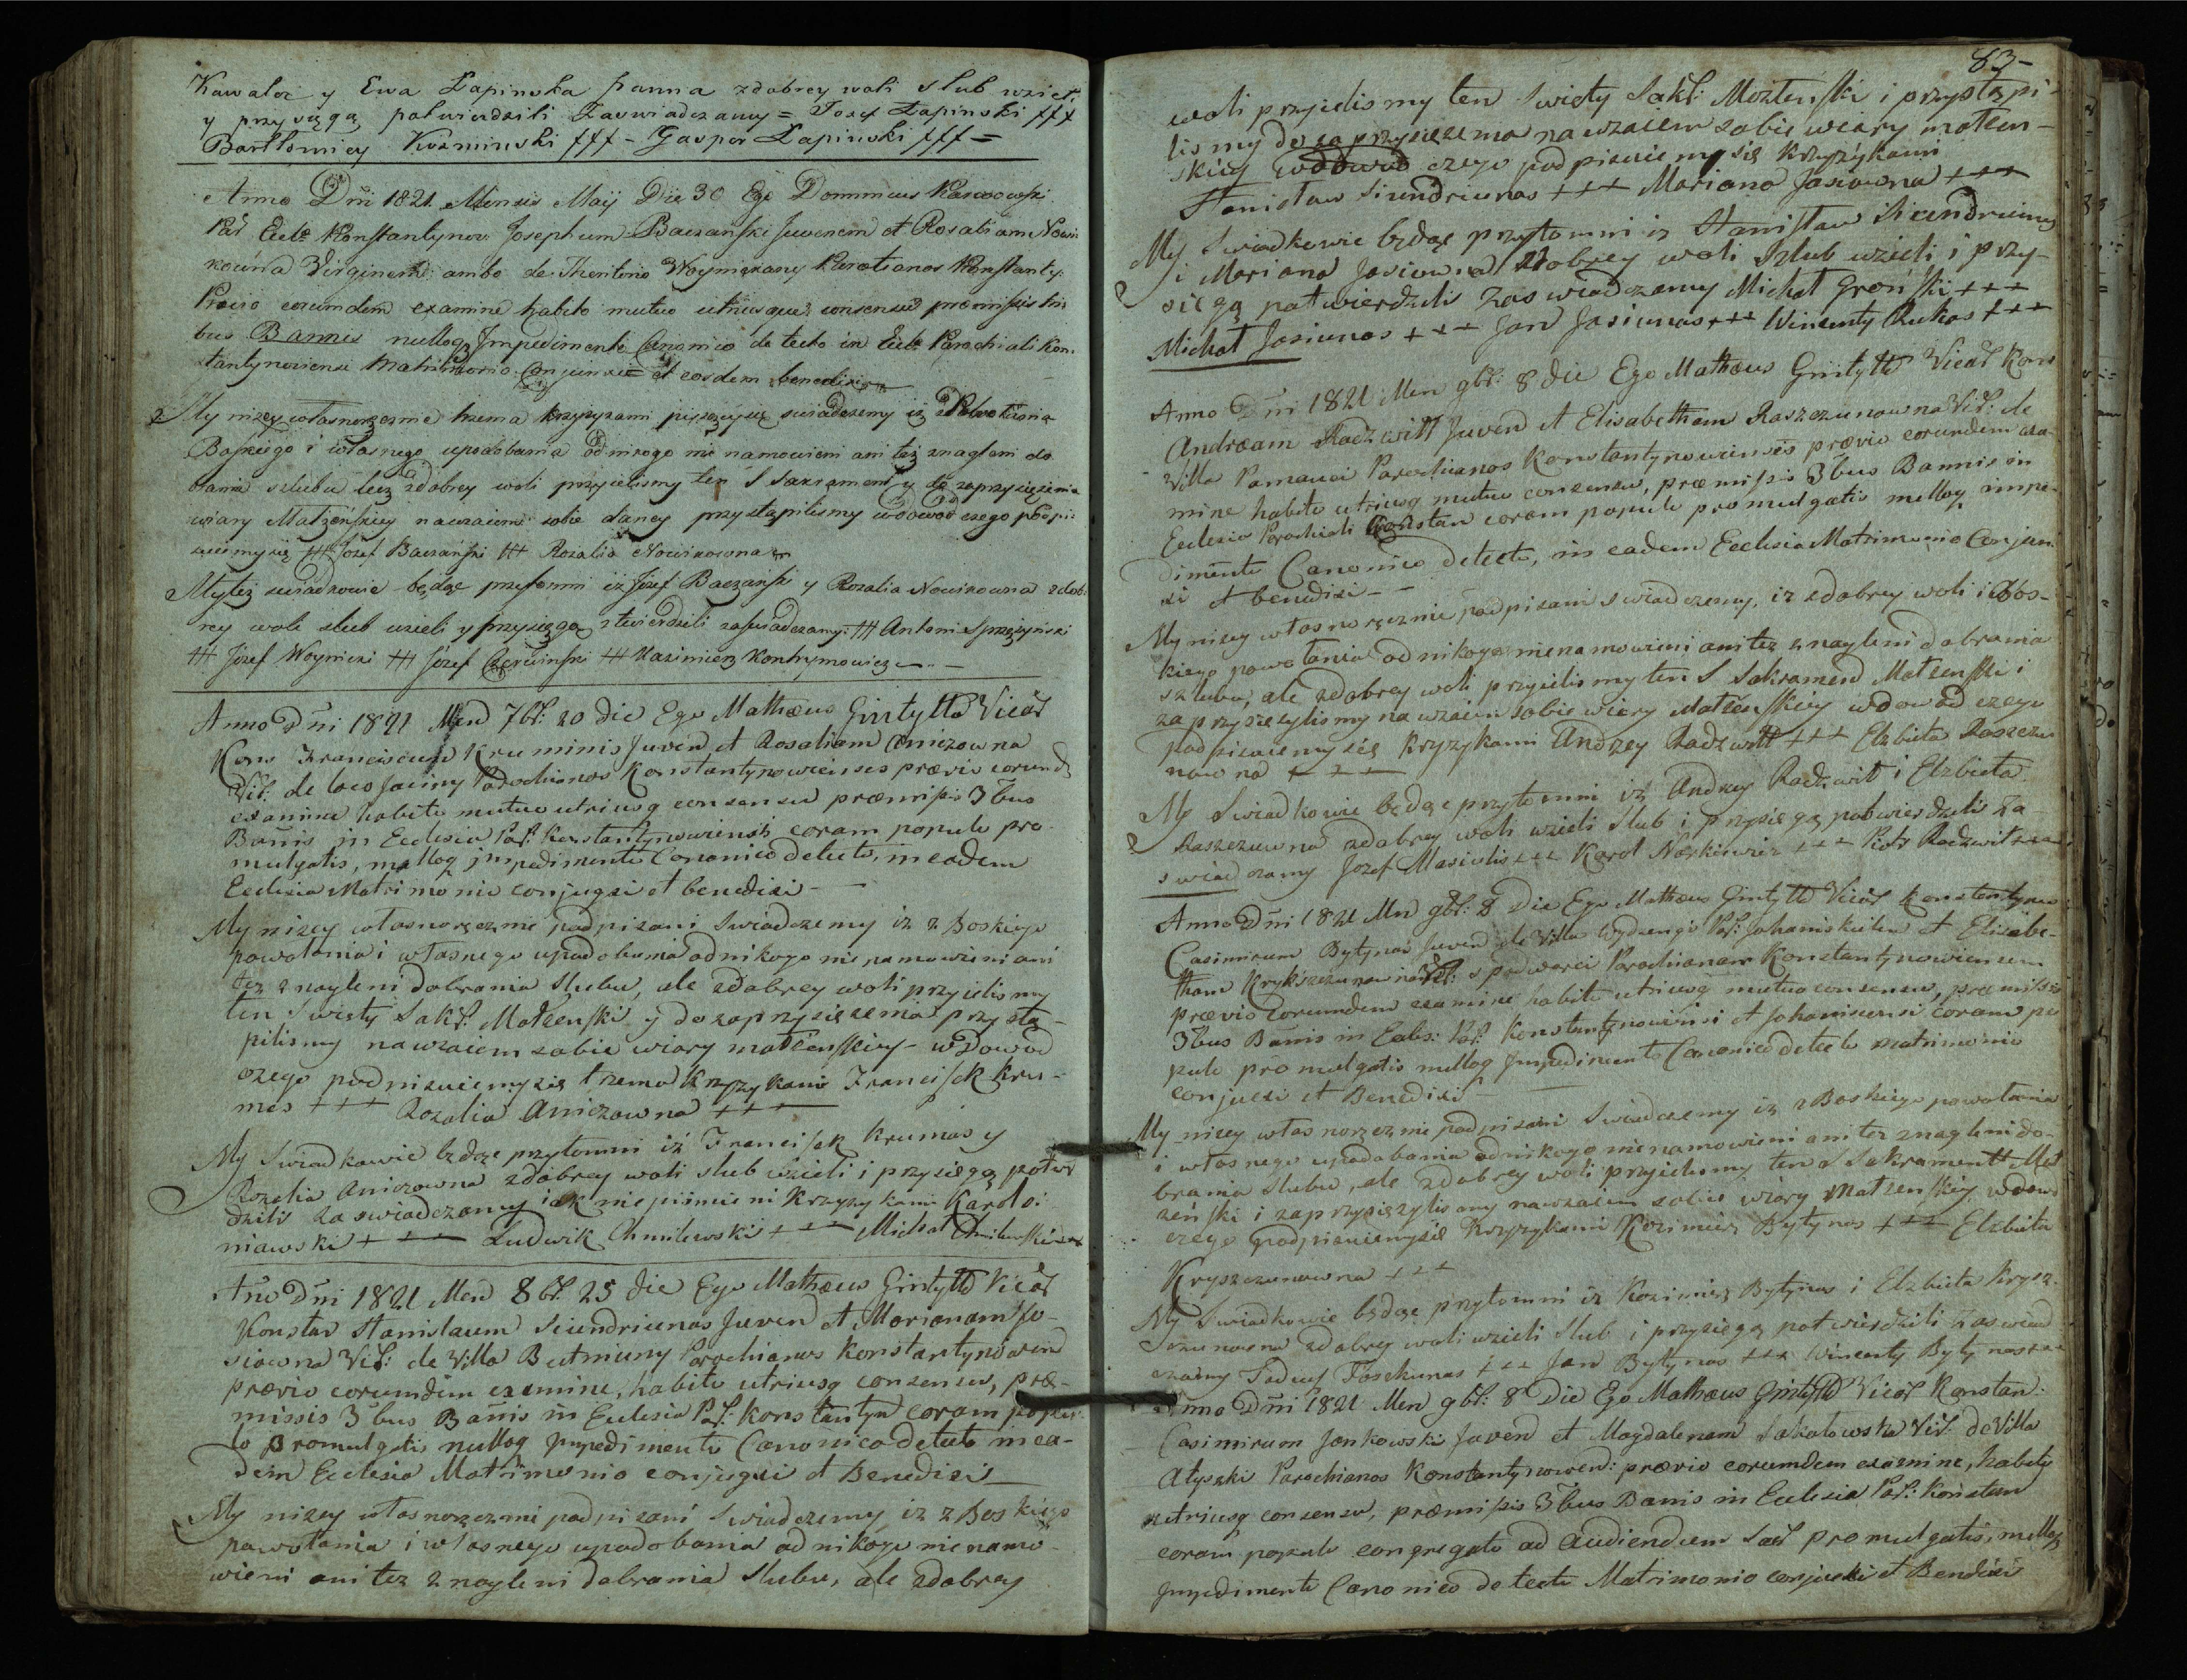 Kawaler y Ewa Łapinska panna zdobrey woli slub wzieli
y przysięgą patwierdzili Zaswiadczamy = Josef Łapinski +++
Bartłomiey Kuzminski +++ - Gasper Łapinski +++ =
Anno Dni 1821 Mensis Maij Die 30 Ego Dominicus
Eccle Konstantynov: Josephum Baczanski Juvenem et Rosaliam Nowi-
kowna Virginem: ambo de Parochianos Konstanty:
Previo eorumdem examine habito mutuo utriusque consensu premissis tri-
bus Bannis nulloq Impedimento Canonico detecto in Eccle Parochiali Kon-
stantynoviensi Matrimonio Conjunxi et eosdem benedixi
My nizey własnoręcznie trzema krzyzykami piszący się swiadczemy iz z Powołania
Boskiego i własnego upodobania od nikogo nie namowieni ani też znagleni do
brania szlubu lecz zdobrey woli przyielismy ten S Sakrament y do zaprzysiężenia
wiary Małżenskiey nawzaiem sobie daney przystąpilismy wdowod czego podpi-
suiemy się +++ Jozef Baczanski +++ Rozalia Nowikowna
My też swiadkowie będąc przytomni iż Jozef Baczanski y Rozalia Nowikowna zdob-
rey woli slub wzieli y przysięgą ztwierdzili zaswiadczamy: +++ Antoni
+++ Józef Woynicki +++ Józef Czerwinski +++ Kazimierz Kontrymowicz
Anno Dni 1821 Men 7br: 20 die Ego Mathæus Gintyłło Vicar
Kons Franciscum Kruminis Juven et Rosaliam Aniczowna
Vir: de loco Jaciny Parochianos Konstantynowienses prævio eorund
examine habito mutuo utriusq consensu præmissis 3bus
Banis in Ecclesia Par: Konstantynowiensi coram populo pro-
mulgatis, nulloq impedimento Canonico detecto, in eadem
Ecclesia Matrimonio conjugxi et benedixi -
My nizey własnoręcznie podpisani Swiadczemy iz z Boskiego
powołania i własnego upodobania od nikogo nie namowieni ani
tez znagleni dobrania Slubu, ale zdobrey woli przyielismy
ten Swięty Sakr: Małzenski y do zaprzysięzenia przystą-
pilismy nawzaiem sobie wiary małzenskiey - wdowod
czego podpisuiemy się trzema Krzyzykami Franciszek Kru-
mas +++ Rozalia Aniczowna +++
My Swiadkowie będąc przytomni iż Franciszek Krumas y
Rozalia Aniczowna zdobrey woli slub wzieli i przysięgą potwr
dzili zaswiadczamy iak niepismieni Krzyzykami Karol
niawski +++ Ludwik Chmilewski +++ Michał Chmilewski +++
Ano Dni 1821 Men 8br: 25 die Ego Mathæus Gintyłło Vicar
Konstan Stanislaum Sciendriunas Juven et Marianam Jo-
siowna Vir: de Villa Butniuny Parochianos Konstantynowien
prævio eorumdem examine, habito utriusq consensu, præ-
missis 3bus Banis in Ecclesia Par: Konstantyn coram popu-
lo Promulgatis nulloq Impedimento Canonico detecto in ea-
dem Ecclesia Matrimonio conjugxi et Benedixi
My nizey własnoręcznie podpisani Swiadczemy iz z Boskiego
powołania i własnego upodobania od nikogo nie namo-
wieni ani tez znagleni dobrania Slubu, ale zdobrey
83-
woli przyielismy ten Swięty Sakr: Małzenski i przystąpi-
lismy do zaprzysięzenia nawzaiem sobie wiary małzen-
skiey wdowod czego podpisuiemy się Krzyzykami
Stanisław Siundriunas +++ Mariana Jasiowna +++
My Swiadkowie będąc przytomni iz Stanisław Siundriunas
i Mariana Jasiowna zdobrey woli Szlub wzieli i przy-
sięgą patwierdzili Zaswiadczamy Michał Gronski +++
Michał Jasiunas +++ Jan Jasiunas +++ Wincenty Rukas +++
Anno Dni 1821 Men 9br: 8 die Ego Mathæus Gintyłło Vicar Kons
Andream Radzwiłł Juven et Elisabetham Raszczunowna Vir: de
Villa Parochianos Konstantynowiensis prævio eorundem exa-
mine habito utriusq mutuo consensu, præmissis 3bus Bannis in
Ecclesia Parochiali Constan coram populo promulgatis nulloq impe-
dimento Canonico detecto, in eadem Ecclesia Matrimonio Conjun-
xi et benedixi -
My nizey własnoręcznie podpisani swiadczemy, iz zdobrey woli i Bos-
kiego powołania od nikogo nienamowieni ani tez znagleni dobrania
szlubu, ale zdobrey woli przyielismy ten S Sakrament Małzenski i
zaprzysięzylismy nawzaiem sobie wiary Małzenskiey wdowod czego
podpisuiemy się Kryzykami Andrzey Radzwiłł +++ Elzbieta Raszczu
nowna +++
My Swiadkowie będąc przytomni iż Andrzey Radzwił i Elzbieta
Raszczuwna zdobrey woli wzieli Slub i przysięgą potwierdzili Za-
swiadczamy Jozef Masiulis +++ Karol Narkiewicz +++ Piotr Radzwił +++
Anno Dni 1821 Men 9br: 8 Die Ego Mathæus Gintyłło Vicar Konstantynow
Casimirum Bytynas Juven de Villa Par: Johaniskielen et Elisabe-
tham Krykszczunowna Vir: Parochianam Konstantynowiensem
prævio Eorumdem examine habito utriusq mutuo consensu, præmissis
3bus Banis in Ecles: Par: Konstantynowiensi et Johaniscensi coram po
pulo promulgatis nulloq Impedimento Canonico detecto matrimonio
conjuxi et Benedixi -
My nizey własnoręcznie podpisani Swiadczemy iz z Boskiego powołania
i własnego upodobania od nikogo nienamowieni ani tez znagleni do-
brania Slubu, ale zdobrey woli przyielismy ten S Sakrament Mał
zenski i zaprzysięzylismy nawzaiem sobie wiary Małzenskiey wdowo
czego podpisuiemysię Krzyzykami Kazimierz Bytynas +++ Elzbieta
Kryszczunowna +++
My Swiadkowie będąc przytomni iz Kazimierz Bytynas i Elzbieta Krysz-
czunowna zdobrey woli wzieli Slub i przysięgą potwierdzili Zaswiad
czamy Tadeusz Toszkunas +++ Jan Bytynas +++ Wincenty Bytynas +++
Anno Dni 1821 Men 9br: 8 Die Ego Mathæus Gintyłło Vicar Konstan:
Casimirum Jankowski Juven et Magdalenam Sakałowska Vir: de Villa
Atyszki Parochianos Konstantynowen: prævio eorumdem examine, habito
utriusq consensu, præmissis 3bus Banis in Ecclesia Par: Konstan
coram populo congregato ad audiendum Sacr promulgatis, nulloq
Impedimento Canonico detecto Matrimonio conjuxi et Benedixi